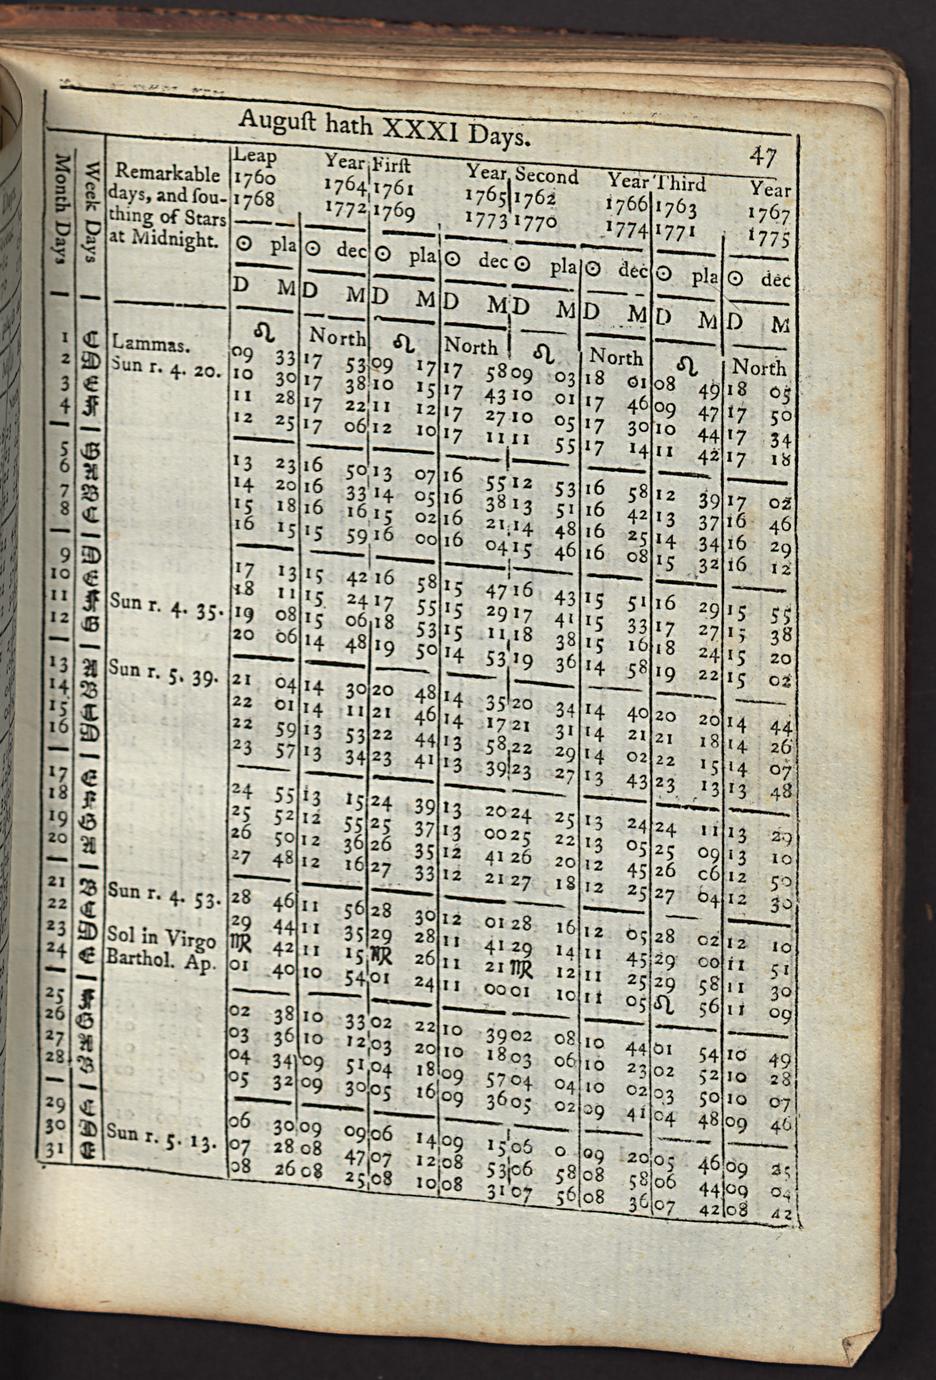 Auguſt hath XXXI Days.
47
Month Days
Week Days
Remarkable days, and ſou- thing of Stars at Midnight.
Leap Year Firſt Year Second Year Third Year
1760 1764 1761 1765 1762 1766 1763 1767
1768 1772 1769 1773 1770 1774 1771 1775
☉ pla ☉ dec ☉ pla ☉ dec ☉ pla ☉ dec ☉ pla ☉ dec
D M D M D M D M D M D M D M D M
♌ North ♌ North ♌ North ♌ North
1 C Lammas. 09 33 17 53 09 17 17 58 09 03 18 01 08 49 18 05
2 D Sun r. 4. 20. 10 30 17 38 10 15 17 43 10 01 17 46 09 47 17 50
3 E 11 28 17 22 11 12 17 27 10 05 17 30 10 44 17 34
4 F 12 25 17 06 12 10 17 11 11 55 17 14 11 42 17 18
5 G 13 23 16 50 13 07 16 55 12 53 16 58 12 39 17 02
6 A 14 20 16 33 14 05 16 38 13 51 16 42 13 37 16 46
7 B 15 18 16 16 15 02 16 21 14 48 16 25 14 34 16 29
8 C 16 15 15 59 16 00 16 04 15 46 16 08 15 32 16 12
9 D 17 13 15 42 16 58 15 47 16 43 15 51 16 29 15 55
10 E 18 11 15 24 17 55 15 29 17 41 15 33 17 27 15 38
11 F Sun r. 4. 35. 19 08 15 06 18 53 15 11 18 38 15 16 18 24 15 20
12 G 20 06 14 48 19 50 14 53 19 36 14 58 19 22 15 02
13 A Sun r. 5. 39. 21 04 14 30 20 48 14 35 20 34 14 40 20 20 14 44
14 B 22 01 14 11 21 46 14 17 21 31 14 21 21 18 14 26
15 C 22 59 13 53 22 44 13 58 22 29 14 02 22 15 14 07
16 D 23 57 13 34 23 41 13 39 23 27 13 43 23 13 13 48
17 E 24 55 13 15 24 39 13 20 24 25 13 24 24 11 13 29
18 F 25 52 12 55 25 37 13 00 25 22 13 05 25 09 13 10
19 G 26 50 12 36 26 35 12 41 26 20 12 45 26 06 12 50
20 A 27 48 12 16 27 33 12 21 27 18 12 25 27 04 12 30
21 B Sun r. 4. 53. 28 46 11 56 28 30 12 01 28 16 12 05 28 02 12 10
22 C 29 44 11 35 29 28 11 41 29 14 11 45 29 00 11 51
23 D Sol in Virgo ♍ 42 11 15 ♍ 26 11 21 ♍ 12 11 25 29 58 11 30
24 E Barthol. Ap. 01 40 10 54 01 24 11 00 01 10 11 05 ♌ 56 11 09
25 F 02 38 10 33 02 22 10 39 02 08 10 44 01 54 10 49
26 G 03 36 10 12 03 20 10 18 03 06 10 23 02 52 10 28
27 A 04 34 09 51 04 18 09 57 04 04 10 02 03 50 10 07
28 B 05 32 09 30 05 16 09 36 05 02 09 41 04 48 09 46
29 C 06 30 09 09 06 14 09 15 06 0 09 20 05 46 09 25
30 D Sun r. 5. 13. 07 28 08 47 07 12 08 53 06 58 08 58 06 44 09 04
31 E 08 26 08 25 08 10 08 31 07 56 08 36 07 42 08 42